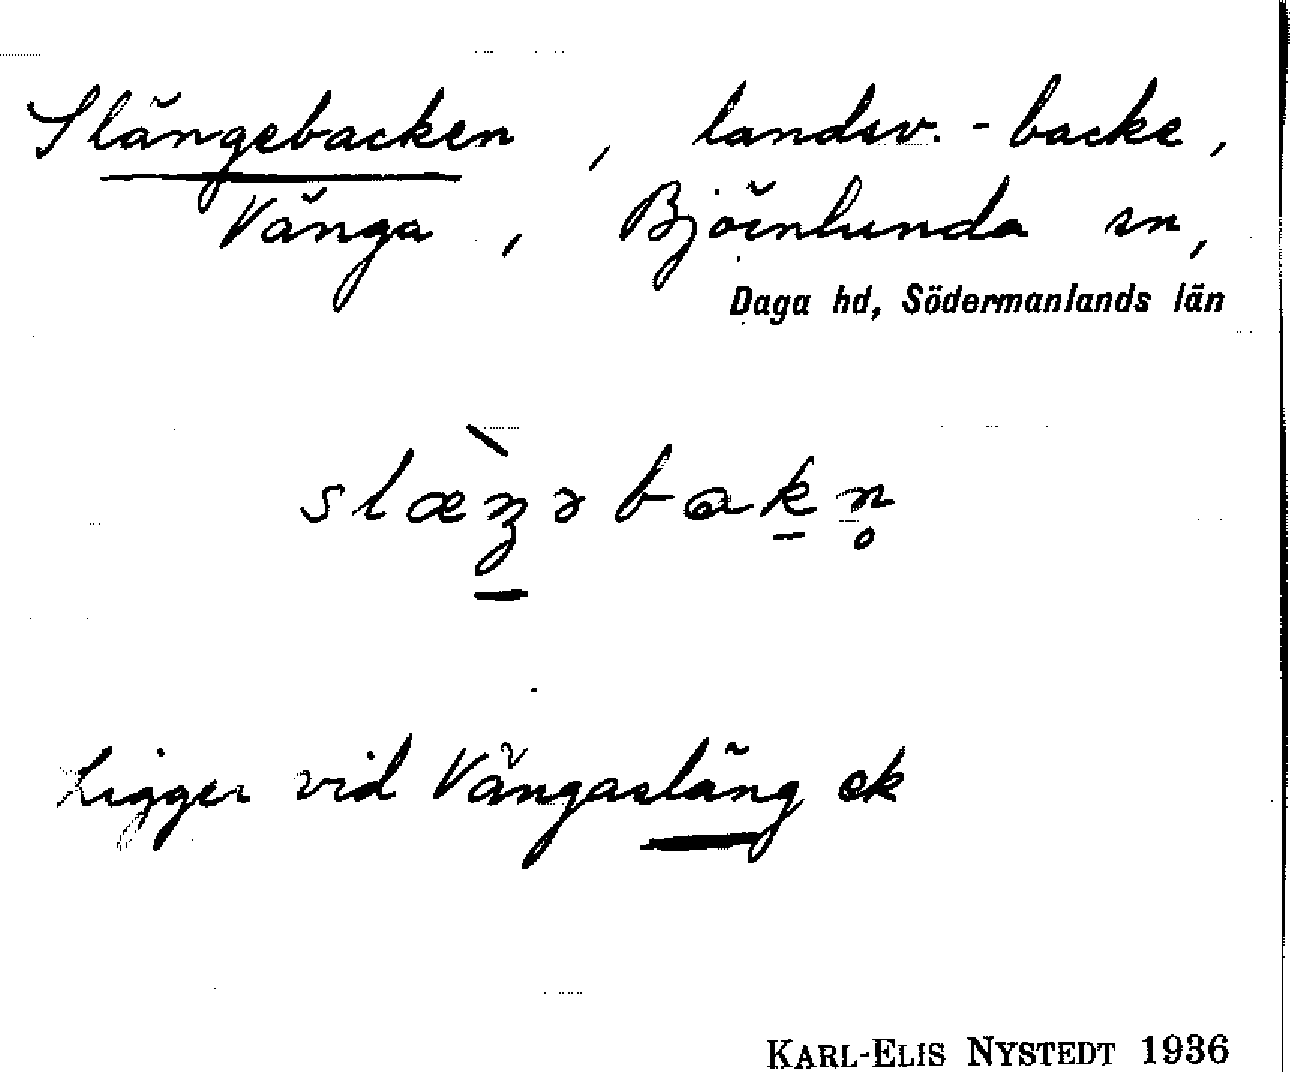 Slängebacken, landsv.-backe,
Vänga, Björnlunda sn,
Daga hd, Södermanlands län
slæ̀ŋəbakn̥
Ligger vid Vängasläng ek
KARL-ELIS NYSTEDT 1936